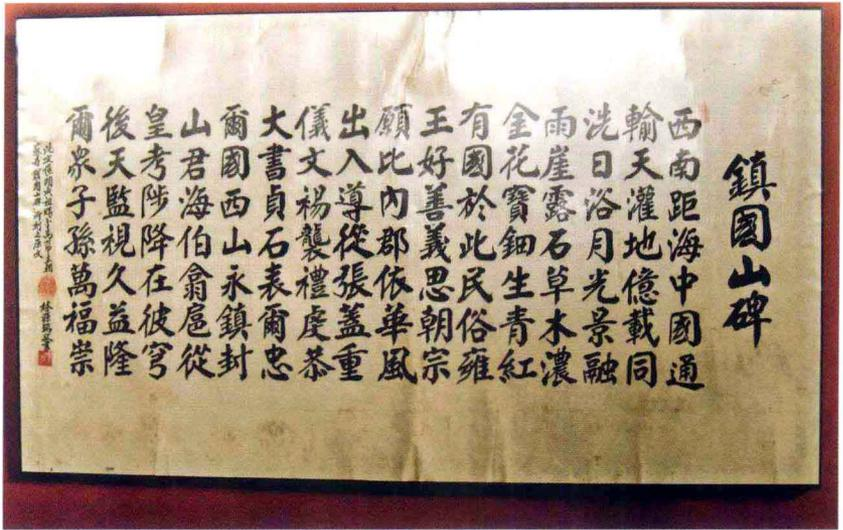 鎮國山碑
西南距海中國通
輸天灌地億載同
洗日浴月光景融
雨崖露石草木濃
金花寶鈿生青紅
有國於此民俗雍
王好善義思朝宗
願比內郡依華風
出入導從張蓋重
儀文裼襲禮虔恭
大書貞石表爾忠
爾國西山永鎮封
山君海伯翕扈從
皇考陟降在彼穹
後天監視久益隆
爾眾子孫萬福崇